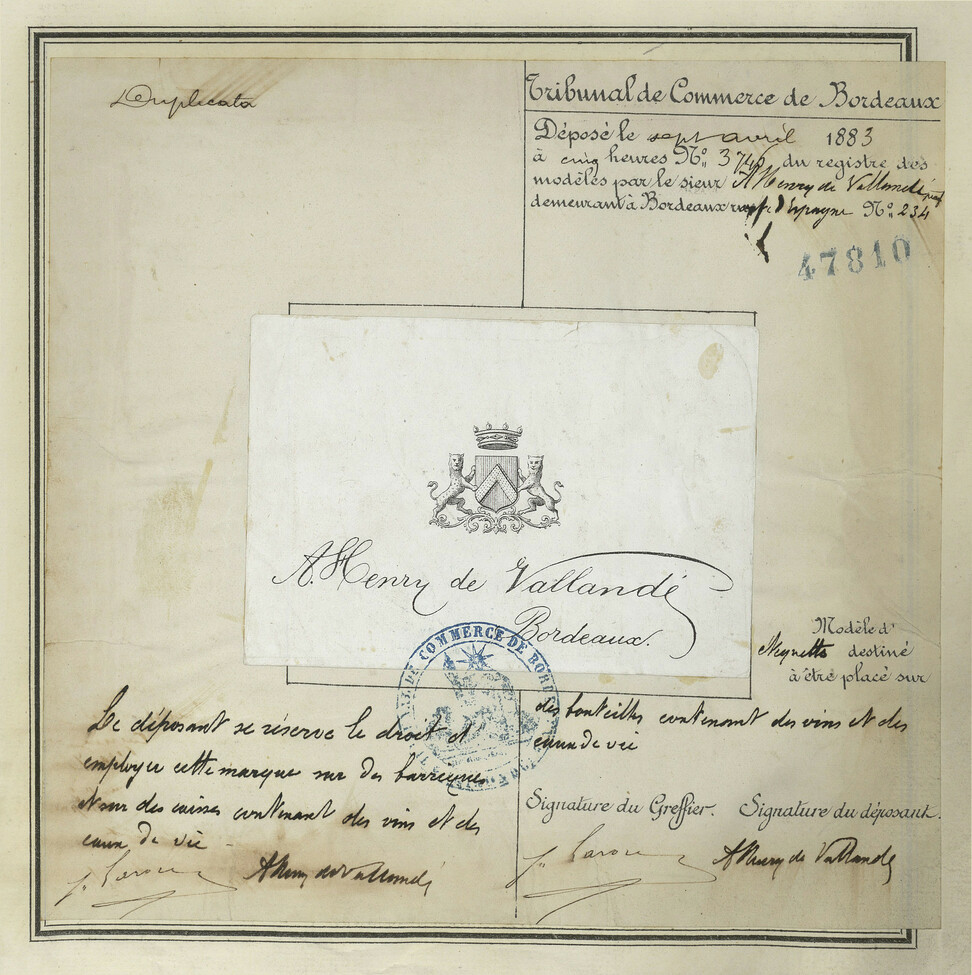 Duplicata
Tribunal de Commerce de Bordeaux
Déposé le sept avril 1883
à cinq heures Nº 3746 du registre des
modèles par le sieur A Henry de Vallandé
demeurant à Bordeaux d'Espagne Nº 234
47810
A. Henry de Vallandé
Bordeaux.
COMMERCE DE BORDE
Modèle d'
étiquette destiné
à être placé sur
des bouteilles contenant des vins et des
eaux de vie
Le déposant se réserve le droit d'
employer cette marque sur des barriques
et sur des caisses contenant des vins et des
eaux de vie
Signature du Greffier. Signature du déposant.
A Henry de Vallandé
A Henry de Vallandé